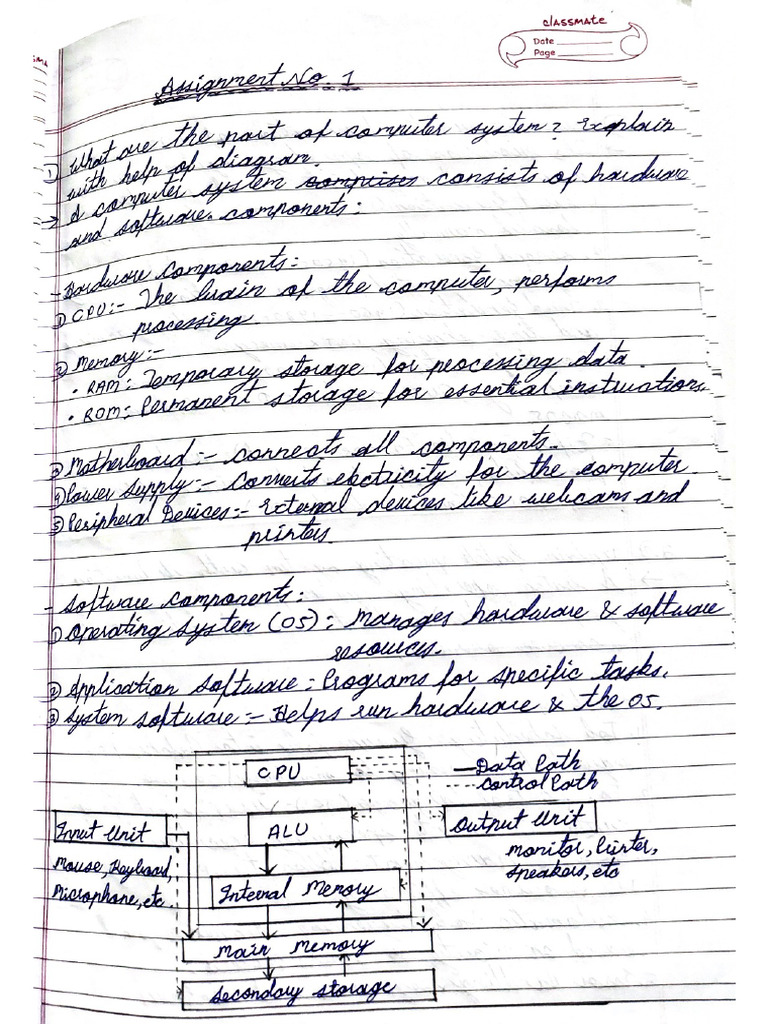 classmate
Date
Page
Assignment No. 1
① What are the part of computer system? Explain
with help of diagram.
→ A computer system comprises consists of hardware
and software components:
- Hardware Components:
① CPU:- The brain of the computer, performs
processing.
② Memory:-
• RAM: Temporary storage for processing data.
• ROM: Permanent storage for essential instructions.
③ Motherboard:- connects all components.
④ Power Supply:- Converts electricity for the computer
⑤ Peripheral Devices:- External devices like webcams and
printers.
- Software components:
① Operating System (OS): Manages hardware & software
resources.
② Application Software: Programs for specific tasks.
③ System software:- Helps run hardware & the OS.
CPU
Data Path
Control Path
Input Unit
ALU
Output Unit
Mouse, Keyboard,
Microphone, etc.
monitor, Printer,
Speakers, etc
Internal Memory
Main Memory
Secondary storage